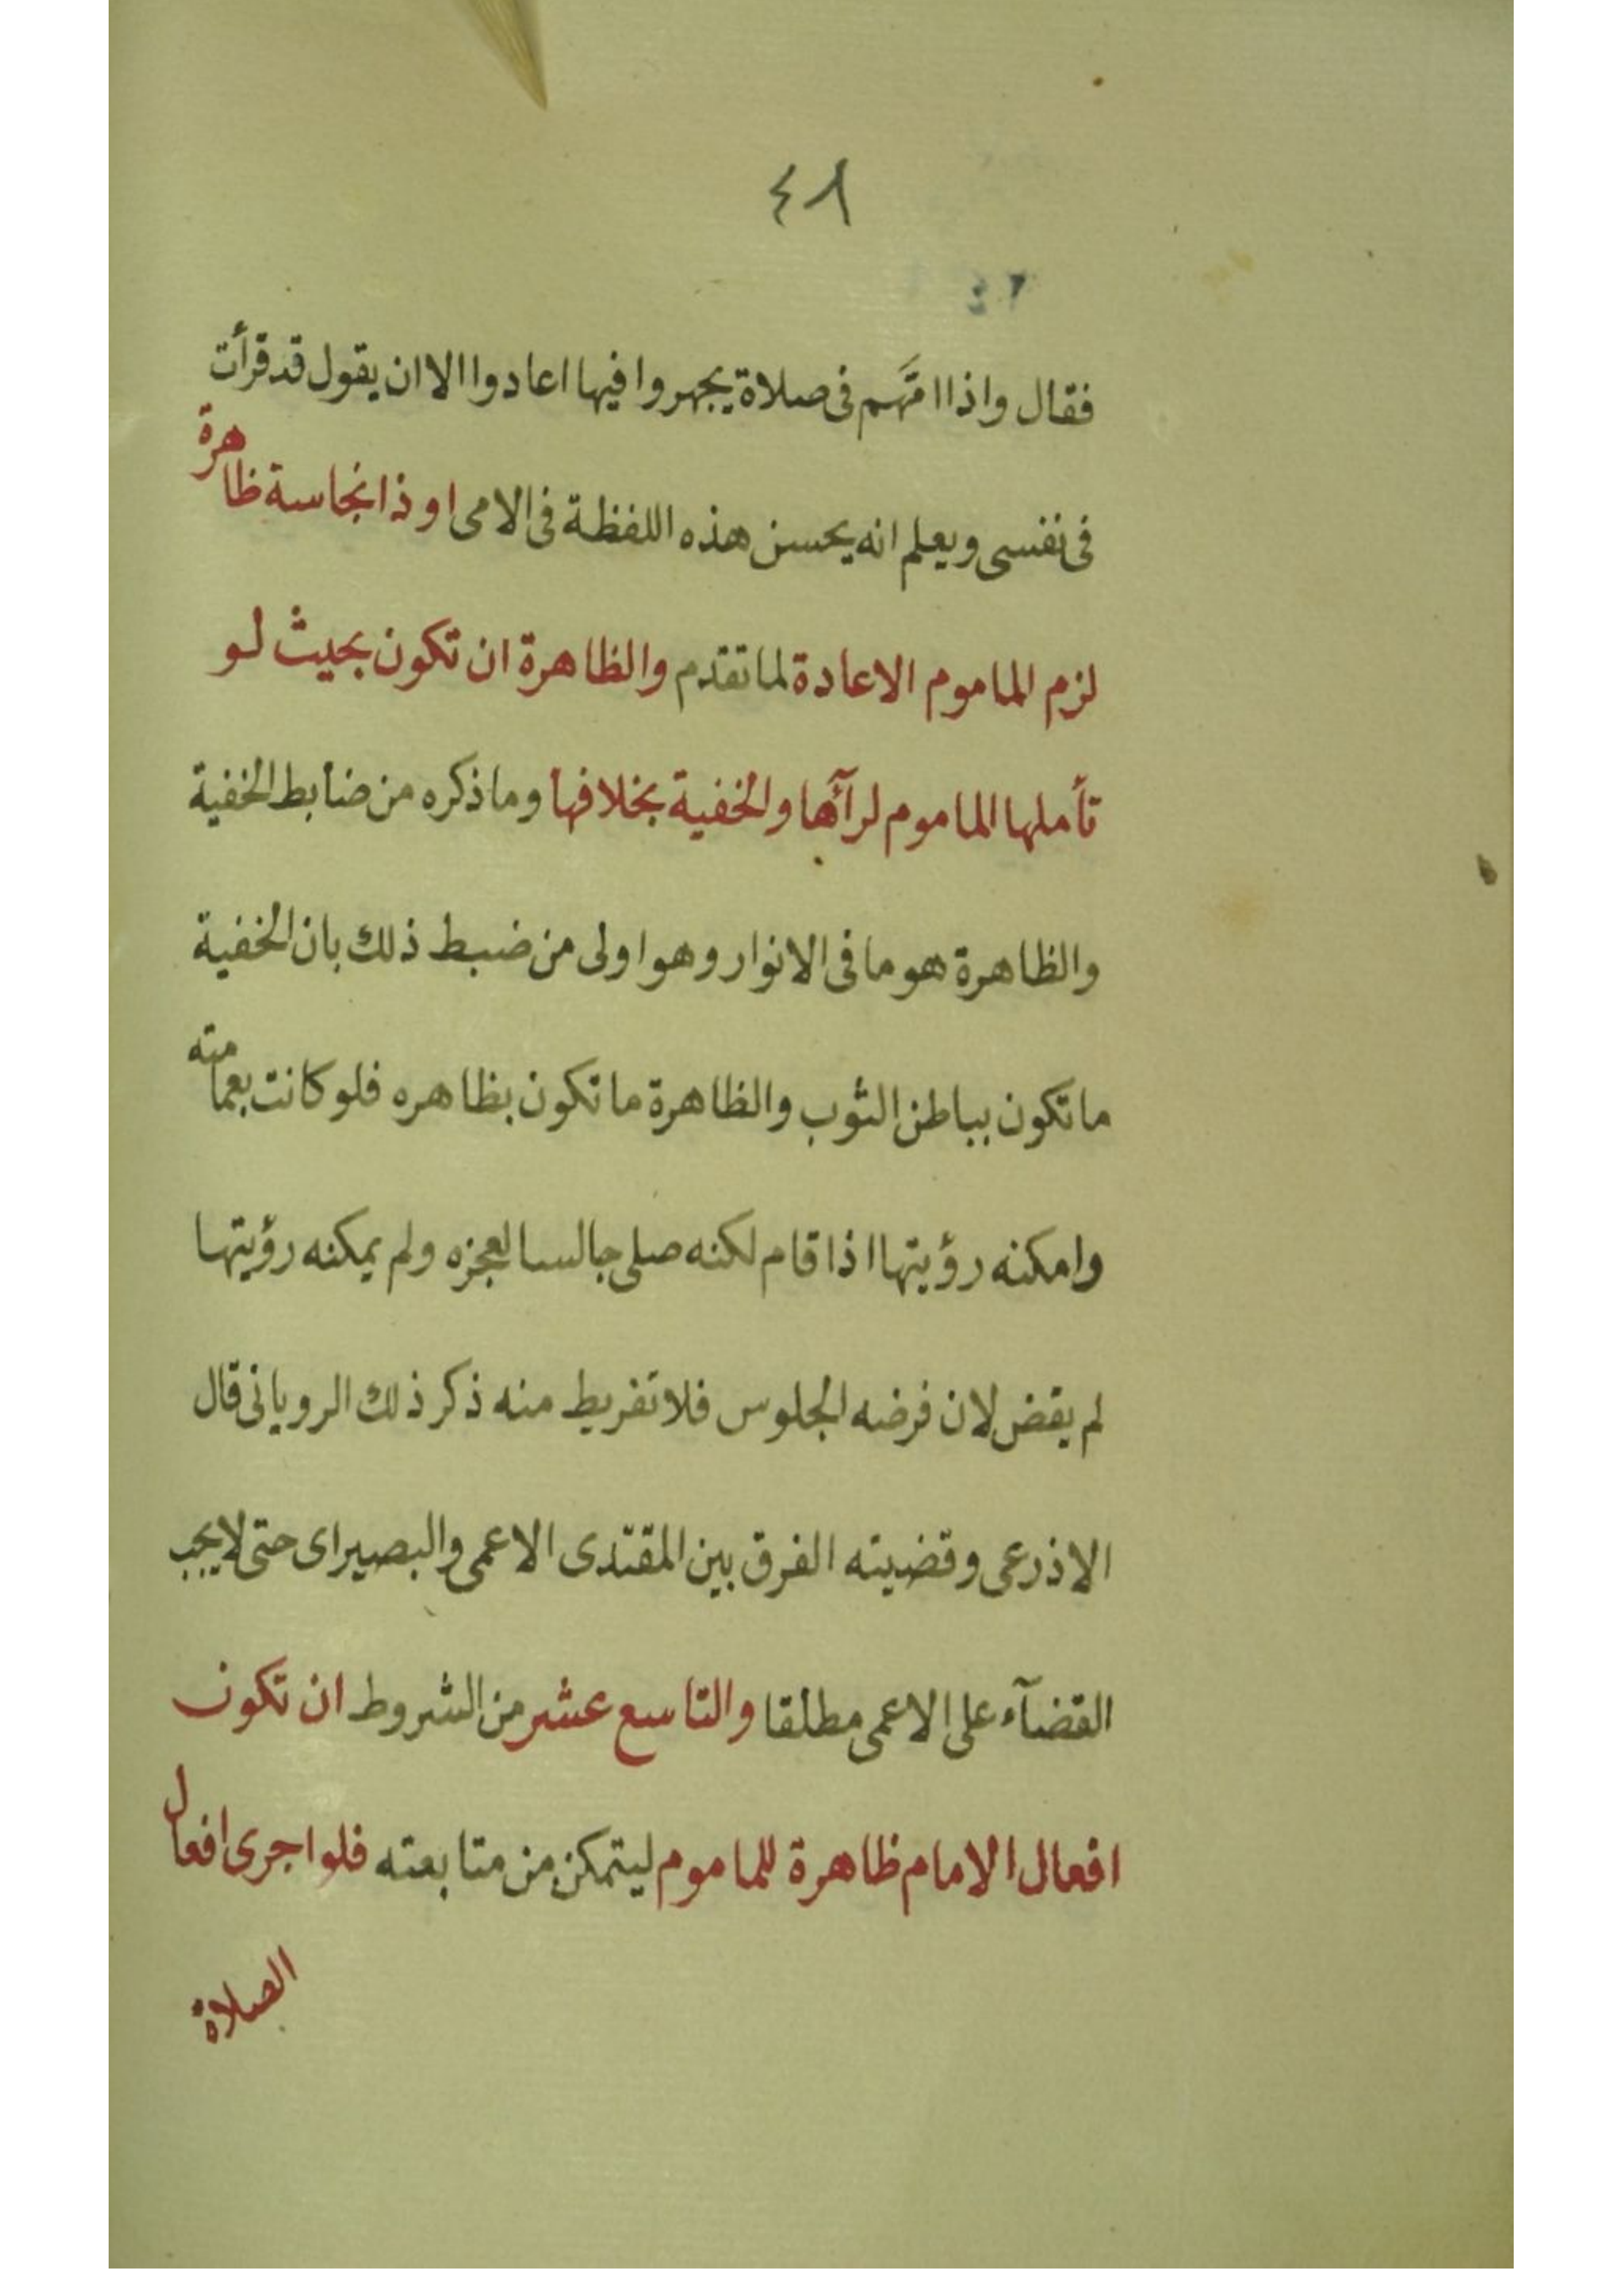 ٤٨
فقال واذا امّهم فى صلاة يجهروا فيها اعادوا الا ان يقول قد قرأت
فى نفسى ويعلم انه يحسن هذه اللفظة فى الامى او ذا نجاسة ظاهرة
لزم الماموم الاعادة لما تقدم والظاهرة ان تكون بحيث لو
تأملها الماموم لرآها والخفية بخلافها وما ذكره من ضابط الخفية
والظاهرة هو ما فى الانوار وهو اولى من ضبط ذلك بان الخفية
ما تكون بباطن الثوب والظاهرة ما تكون بظاهره فلو كانت بعمامته
وامكنه رؤيتها اذا قام لكنه صلى جالسا لعجزه ولم يمكنه رؤيتها
لم يقض لان فرضه الجلوس فلا تفريط منه ذكر ذلك الرويانى قال
الاذرعى وقضيته الفرق بين المقتدى الاعمى والبصير اى حتى لا يجب
القضآء على الاعمى مطلقا والتاسع عشر من الشروط ان تكون
افعال الامام ظاهرة للماموم ليتمكن من متابعته فلو اجرى افعال
الصلاة